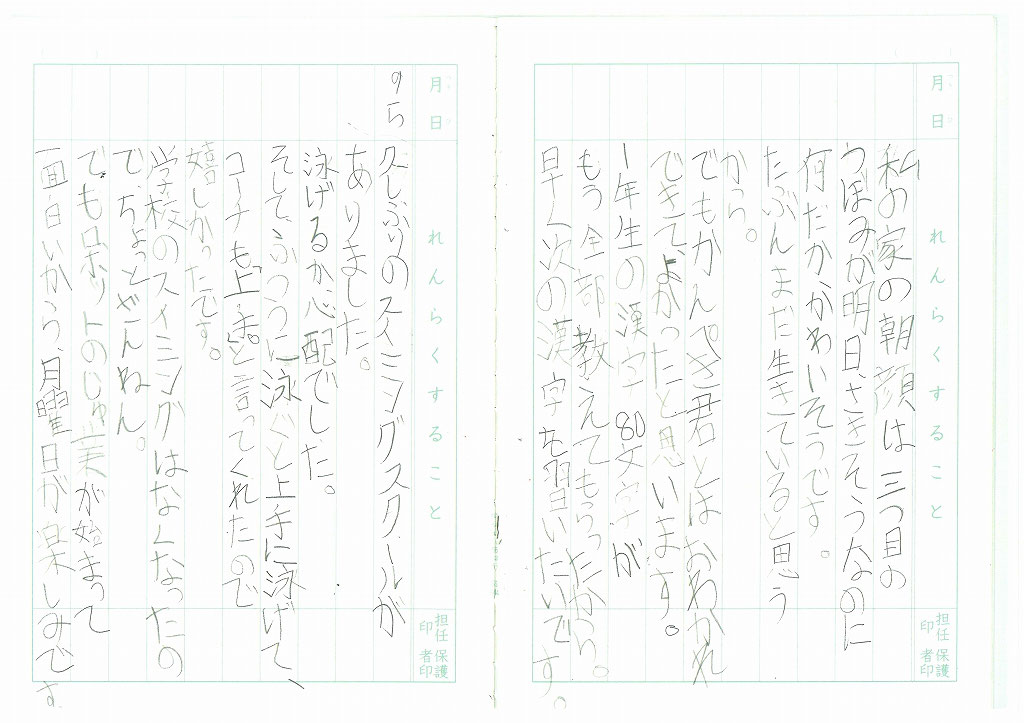 月 日
れんらくすること
担任印
保護者印
私の家の朝顔は三つ目の
つぼみが明日さきそうなのに
有だかかわいそうです。
たぶんまだ生きていると思う
から。
でもかんぺき君とはおわかれ
できてよかったと思います。
1年生の漢字80文字が
もう全部教えてもらったから。
早く次の漢字を習いたいです。
月 日
れんらくすること
担任印
保護者印
久しぶりのスイミングスクールが
ありました。
泳げるか心配でした。
そして、ふつうに泳ぐと上手に泳げて、
コーチも「上手。」と言ってくれたので
嬉しかったです。
学校のスイミングはなくなったの
で、ちょっとざんねん。
でもロボットのじゅ業が始まって
面白いから、月曜日が楽しみです。